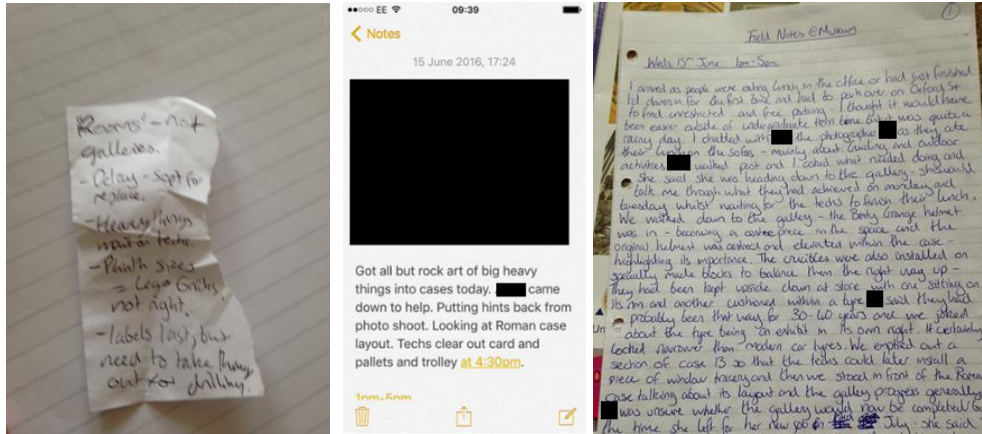 "Rooms" - not
galleries.
- Delay - Sept for
replace.
- Heavy things
wait on techs.
- Plinth sizes
= Lego Guides,
not right.
- labels last, but
need to take things
out for drilling.
EE
09:39
Notes
15 June 2016, 17:24
Got all but rock art of big heavy
things into cases today. came
down to help. Putting hints back from
photo shoot. Looking at Roman case
layout. Techs clear out card and
pallets and trolley at 4:30pm.
1pm-5pm
1
Field Notes @ Museum
Weds 15th June 1pm-5pm
I arrived as people were eating lunch in the office or had just finished.
I'd driven in for the first time and had to park over on Oxford St
to find unrestricted and free parking - I thought it would have
been easier outside of undergraduate term time but it was quite a
rainy day. I chatted with the photographer as they ate
their lunch on the sofas - mainly about Guiding and outdoor
activities. walked past and I asked what needed doing and
she said she was heading down to the gallery - she would
talk me through what they had achieved on monday and
tuesday whilst waiting for the techs to finish their lunch.
We walked down to the gallery - the Benty Grange helmet
was in - becoming a centre piece in the space and the
original helmet was centred and elevated within the case -
highlighting its importance. The crucibles were also installed on
specially made blocks to balance them the right way up -
they had been kept upside down at store with one sitting on
its rim and another cushioned within a tyre. said they had
probably been that way for 30-40 years and we joked
about the tyre being an exhibit in its own right. It certainly
looked narrower than modern car tyres. We emptied out a
section of case 13 so that the techs could later install a
piece of window tracery and then we stood in front of the Roman
case talking about its layout and the gallery progress generally.
was unsure whether the gallery would now be completed by
the time she left for her new job in July - she said